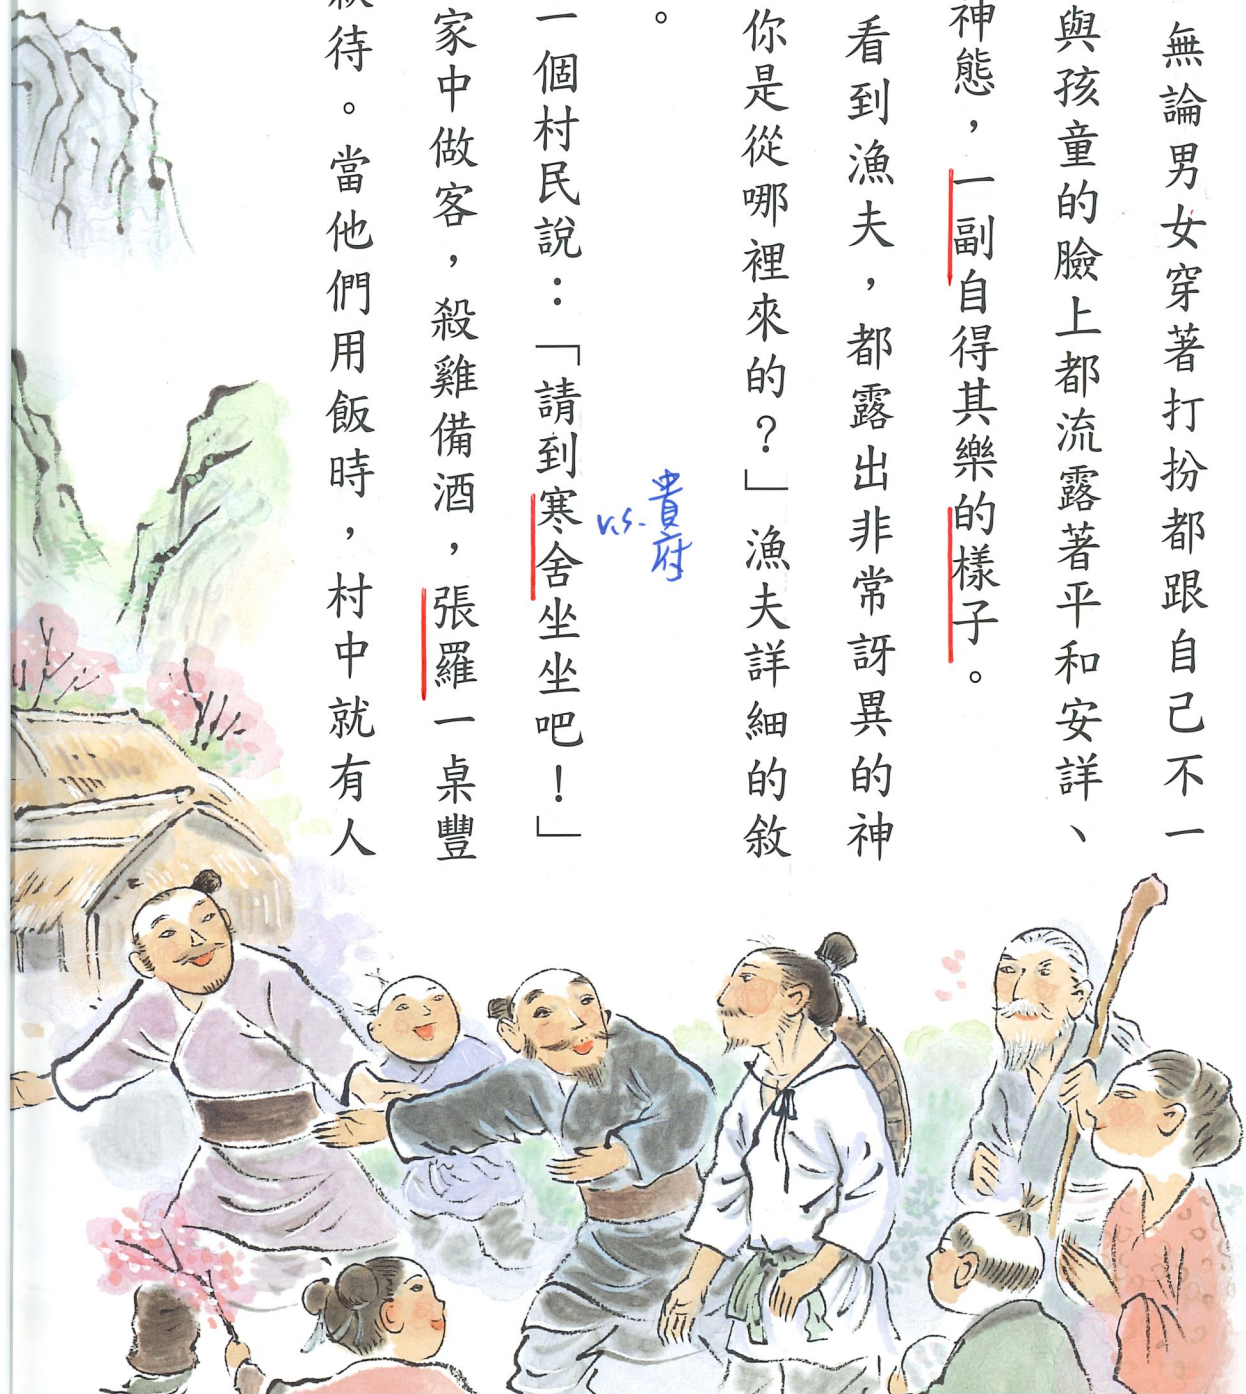 無論男女穿著打扮都跟自己不一
與孩童的臉上都流露著平和安詳、
神態，一副自得其樂的樣子。
看到漁夫，都露出非常訝異的神
你是從哪裡來的？」漁夫詳細的敘
。
v.s.貴府
一個村民說：「請到寒舍坐坐吧！」
家中做客，殺雞備酒，張羅一桌豐
待。當他們用飯時，村中就有人